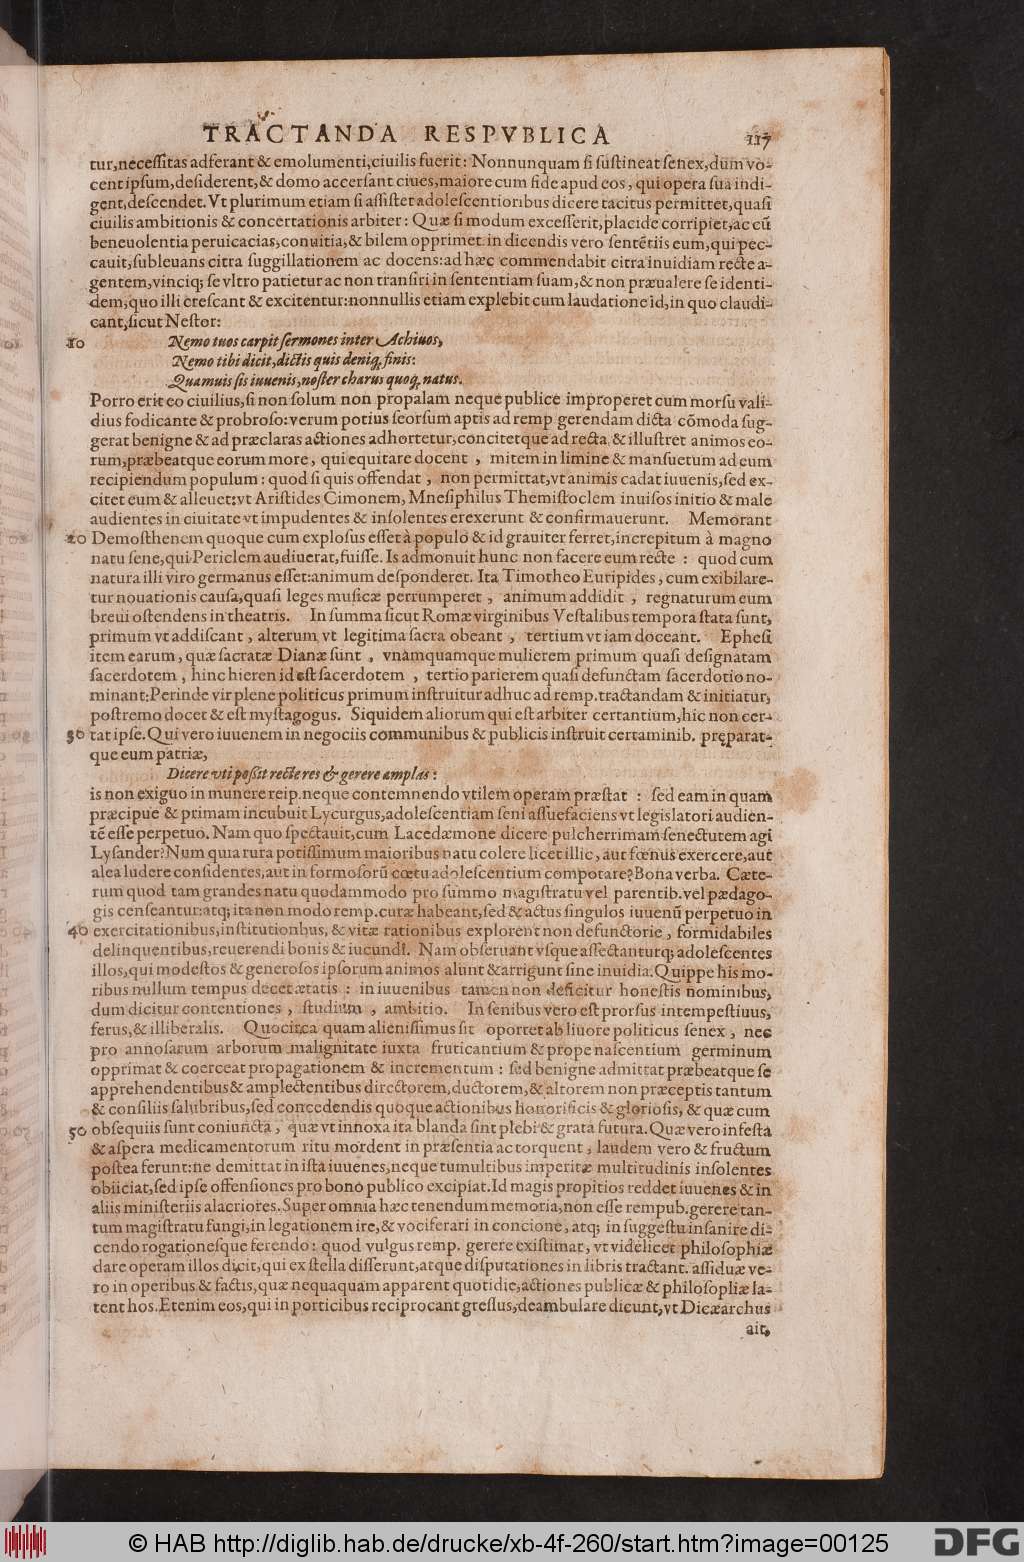 TRACTANDA RESPVBLICA 117
tur, necessitas adferant & emolumenti, ciuilis fuerit: Nonnunquam si sustineat senex, dum vo-
cent ipsum, desiderent, & domo accersant ciues, maiore cum fide apud eos, qui opera sua indi-
gent, descendet. Vt plurimum etiam si assistet adolescentioribus dicere tacitus permittet, quasi
ciuilis ambitionis & concertationis arbiter: Quæ si modum excesserit, placide corripiet, ac cũ
beneuolentia peruicacias, conuitia, & bilem opprimet. in dicendis vero sentẽtiis eum, qui pec-
cauit, subleuans citra suggillationem ac docens: ad hæc commendabit citra inuidiam recte a-
gentem, vinciq; se vltro patietur ac non transiri in sententiam suam, & non præualere se identi-
dem, quo illi crescant & excitentur: nonnullis etiam explebit cum laudatione id, in quo claudi-
cant, sicut Nestor:
10 Nemo tuos carpit sermones inter Achiuos,
Nemo tibi dicit, dictis quis deniq; finis:
Quamuis sis iuuenis, noster charus quoq; natus.
Porro erit eo ciuilius, si non solum non propalam neque publice improperet cum morsu vali-
dius fodicante & probroso: verum potius seorsum aptis ad remp gerendam dicta cõmoda sug-
gerat benigne & ad præclaras actiones adhortetur, concitetque ad recta & illustret animos eo-
rum, præbeatque eorum more, qui equitare docent, mitem in limine & mansuetum ad eum
recipiendum populum: quod si quis offendat, non permittat, vt animis cadat iuuenis, sed ex-
citet eum & alleuet: vt Aristides Cimonem, Mnesiphilus Themistoclem inuisos initio & male
audientes in ciuitate vt impudentes & insolentes erexerunt & confirmauerunt. Memorant
20 Demosthenem quoque cum explosus esset à populo & id grauiter ferret, increpitum à magno
natu sene, qui Periclem audiuerat, fuisse. Is admonuit hunc non facere eum recte: quod cum
natura illi viro germanus esset: animum desponderet. Ita Timotheo Euripides, cum exibilare-
tur nouationis causa, quasi leges musicæ perrumperet, animum addidit, regnaturum eum
breui ostendens in theatris. In summa sicut Romæ virginibus Vestalibus tempora stata sunt,
primum vt addiscant, alterum vt legitima sacra obeant, tertium vt iam doceant. Ephesi
item earum, quæ sacratæ Dianæ sunt, vnamquamque mulierem primum quasi designatam
sacerdotem, hinc hieren id est sacerdotem, tertio parierem quasi defunctam sacerdotio no-
minant: Perinde vir plene politicus primum instruitur adhuc ad remp. tractandam & initiatur,
postremo docet & est mystagogus. Siquidem aliorum qui est arbiter certantium, hic non cer-
30 tat ipse. Qui vero iuuenem in negociis communibus & publicis instruit certaminib. pręparat-
que eum patriæ,
Dicere vti possit recte res & gerere amplas:
is non exiguo in munere reip. neque contemnendo vtilem operam præstat: sed eam in quam
præcipue & primam incubuit Lycurgus, adolescentiam seni assuefaciens vt legislatori audien-
tẽ esse perpetuo. Nam quo spectauit, cum Lacedæmone dicere pulcherrimam senectutem agi
Lysander? Num quia rura potissimum maioribus natu colere licet illic, aut fœnus exercere, aut
alea ludere considentes, aut in formosorũ cœtu adolescentium compotare? Bona verba. Cæte-
rum quod tam grandes natu quodammodo pro summo magistratu vel parentib. vel pædago-
gis censeantur: atq; ita non modo remp. curæ habeant, sed & actus singulos iuuenũ perpetuo in
40 exercitationibus, institutionbus, & vitæ rationibus explorent non defunctorie, formidabiles
delinquentibus, reuerendi bonis & iucundi. Nam obseruant vsque affectanturq; adolescentes
illos, qui modestos & generosos ipsorum animos alunt & arrigunt sine inuidia. Quippe his mo-
ribus nullum tempus decet ætatis: in iuuenibus tamen non deficitur honestis nominibus,
dum dicitur contentiones, studium, ambitio. In senibus vero est prorsus intempestiuus,
ferus, & illiberalis. Quocirca quam alienissimus sit oportet ab liuore politicus senex, nec
pro annosarum arborum malignitate iuxta fruticantium & prope nascentium germinum
opprimat & coerceat propagationem & incrementum: sed benigne admittat præbeatque se
apprehendentibus & amplectentibus directorem, ductorem, & altorem non præceptis tantum
& consiliis salubribus, sed concedendis quoque actionibus honorificis & gloriosis, & quæ cum
50 obsequiis sunt coniuncta, quæ vt innoxa ita blanda sint plebi & grata futura. Quæ vero infesta
& aspera medicamentorum ritu mordent in præsentia ac torquent, laudem vero & fructum
postea ferunt: ne demittat in ista iuuenes, neque tumultibus imperitæ multitudinis insolentes
obiiciat, sed ipse offensiones pro bono publico excipiat. Id magis propitios reddet iuuenes & in
aliis ministeriis alacriores. Super omnia hæc tenendum memoria, non esse rempub. gerere tan-
tum magistratu fungi, in legationem ire, & vociferari in concione, atq; in suggestu insanire di-
cendo rogationesque ferendo: quod vulgus remp. gerere existimat, vt videlicet philosophiæ
dare operam illos dicit, qui ex stella disserunt, atque disputationes in libris tractant. assiduæ ve-
ro in operibus & factis, quæ nequaquam apparent quotidie, actiones publicæ & philosopliæ la-
tent hos. Etenim eos, qui in porticibus reciprocant gressus, deambulare dicunt, vt Dicæarchus
ait,
© HAB http://diglib.hab.de/drucke/xb-4f-260/start.htm?image=00125 DFG